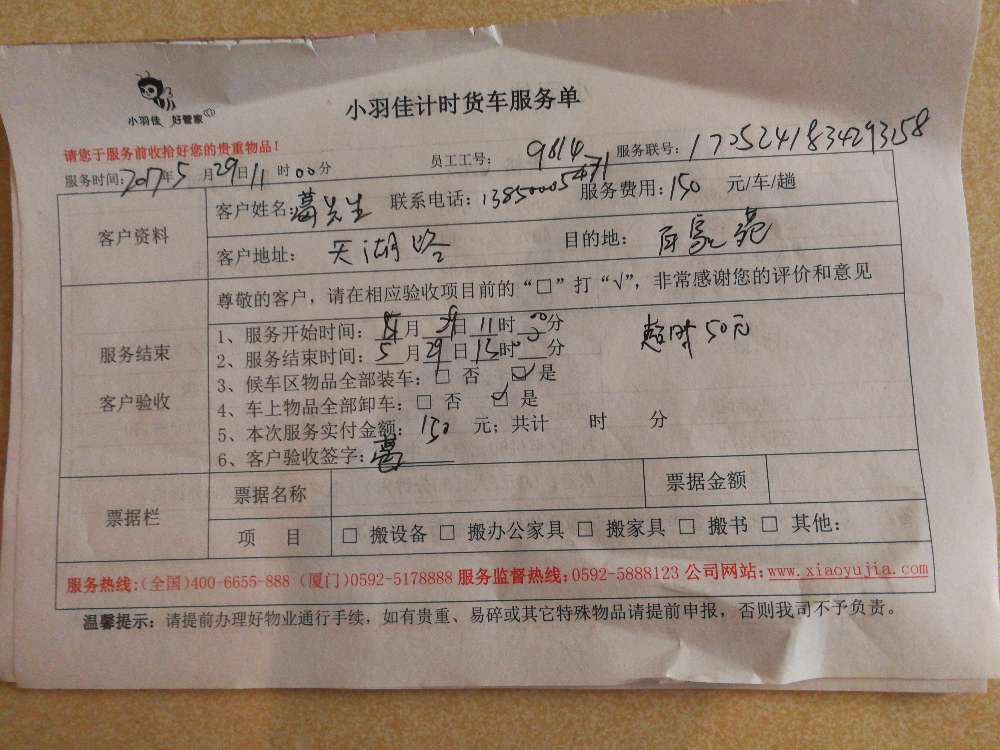 小羽佳 好管家
小羽佳计时货车服务单
请您于服务前收拾好您的贵重物品!
员工工号: 9814 服务联号: 1705241834293158
服务时间: 2017年5月29日11时00分
客户资料
客户姓名: 葛先生 联系电话: 13850005471 服务费用: 150 元/车/趟
客户地址: 天湖路 目的地: 百家苑
尊敬的客户，请在相应验收项目前的“□”打“√”，非常感谢您的评价和意见
服务结束
客户验收
1、服务开始时间: 5月29日11时00分
超时50元
2、服务结束时间: 5月29日13时00分
3、候车区物品全部装车: □ 否 ☑ 是
4、车上物品全部卸车: □ 否 ☑ 是
5、本次服务实付金额: 150 元; 共计 时 分
6、客户验收签字: 葛
票据栏
票据名称 票据金额
项 目 □ 搬设备 □ 搬办公家具 □ 搬家具 □ 搬书 □ 其他:
服务热线:(全国)400-6655-888 (厦门)0592-5178888 服务监督热线:0592-5888123 公司网站:www.xiaoyujia.com
温馨提示: 请提前办理好物业通行手续，如有贵重、易碎或其它特殊物品请提前申报，否则我司不予负责。